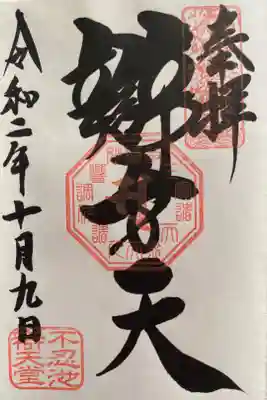 奉拝
辯才天
令和二年十月九日
不忍池
辯天堂